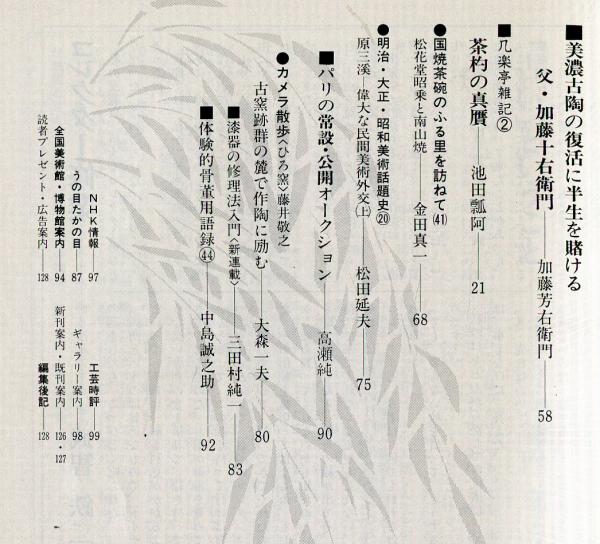 ■美濃古陶の復活に半生を賭ける
父・加藤十右衛門――加藤芳右衛門――58
■几楽亭雑記②
茶杓の真贋――池田瓢阿――21
●国焼茶碗のふる里を訪ねて(41)
松花堂昭乗と南山焼――金田真一――68
●明治・大正・昭和美術話題史⑳
原三溪―偉大な民間美術外交(上)――松田延夫――75
■パリの常設・公開オークション――高瀬純――90
●カメラ散歩〈ひろ窯〉藤井敬之
古窯跡群の麓で作陶に励む――大森一夫――80
■漆器の修理法入門〈新連載〉――三田村純一――83
■体験的骨董用語録㊹――中島誠之助――92
NHK情報――97
工芸時評――99
うの目たかの目――87
ギャラリー案内――98
全国美術館・博物館案内――94
新刊案内・既刊案内――126・127
読者プレゼント・広告案内――128
編集後記――128